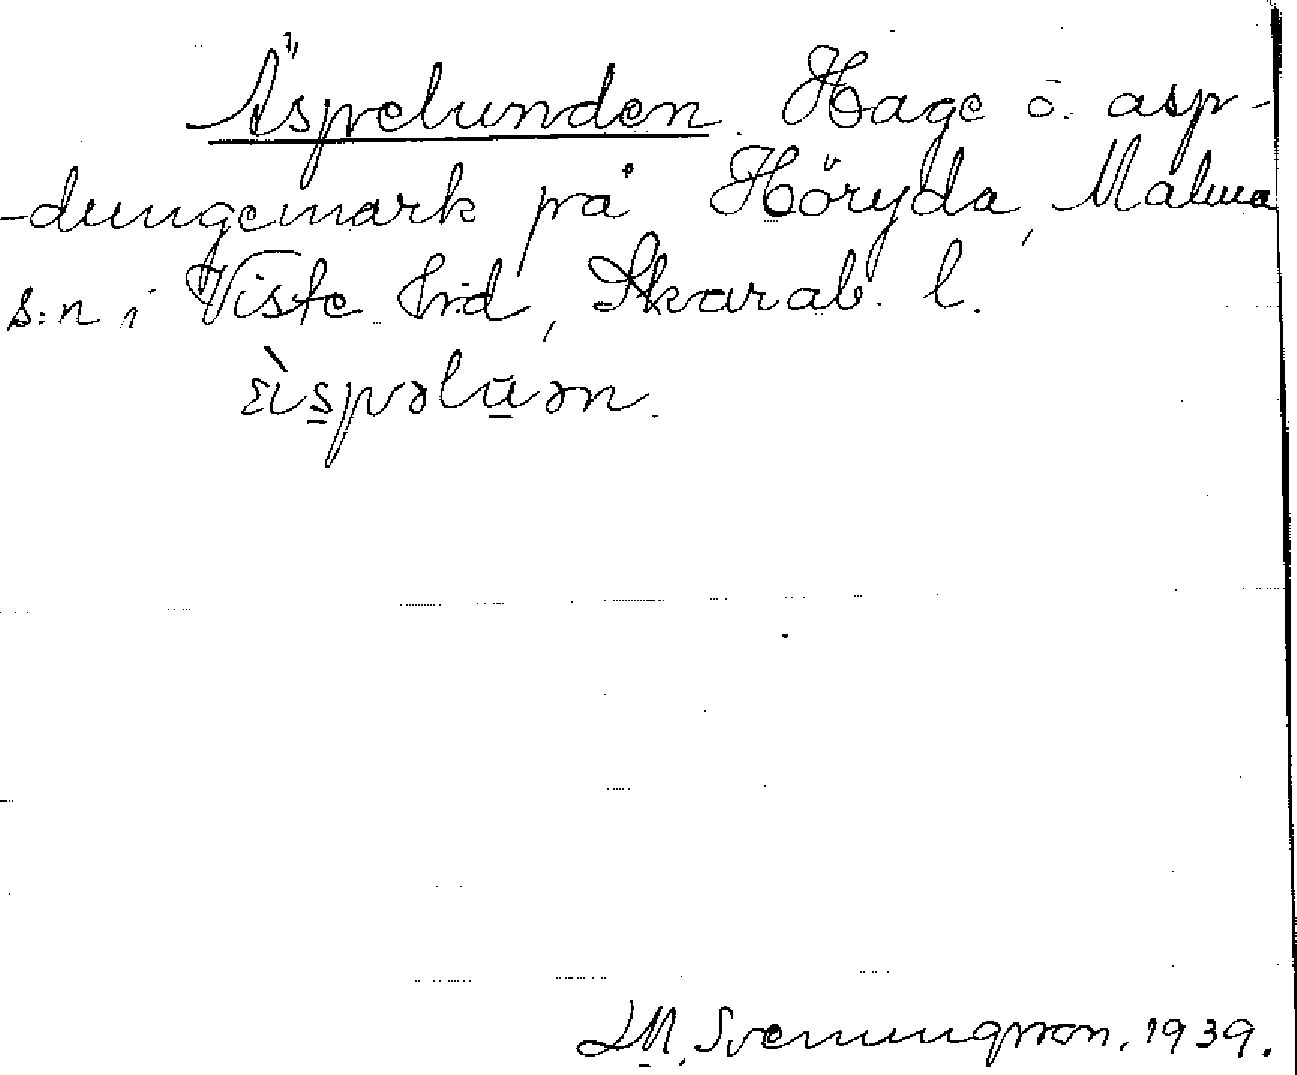 Äspelunden. Hage o. asp-
-dungemark på Höryda, Malma
s:n i Viste hrd, Skarab. l.
äispəlu̲ən.
LM. Svenungsson. 1939.